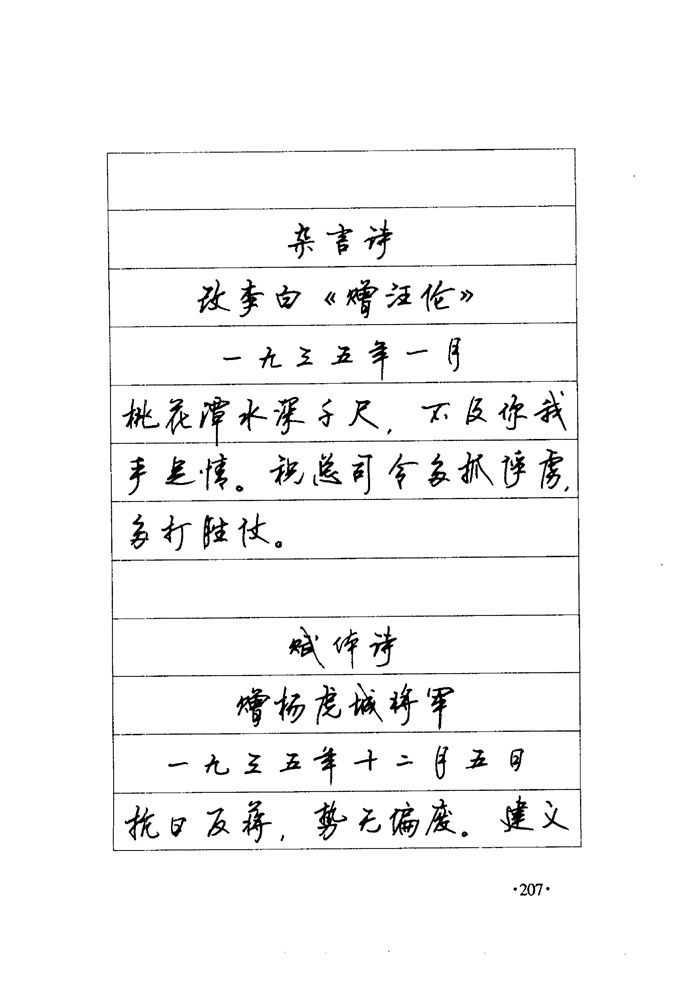 杂言诗
改李白《赠汪伦》
一九三五年一月
桃花潭水深千尺，不及你我
手足情。祝总司令多抓俘虏，
多打胜仗。
赋体诗
赠杨虎城将军
一九三五年十二月五日
抗日反蒋，势无偏废。建义
·207·